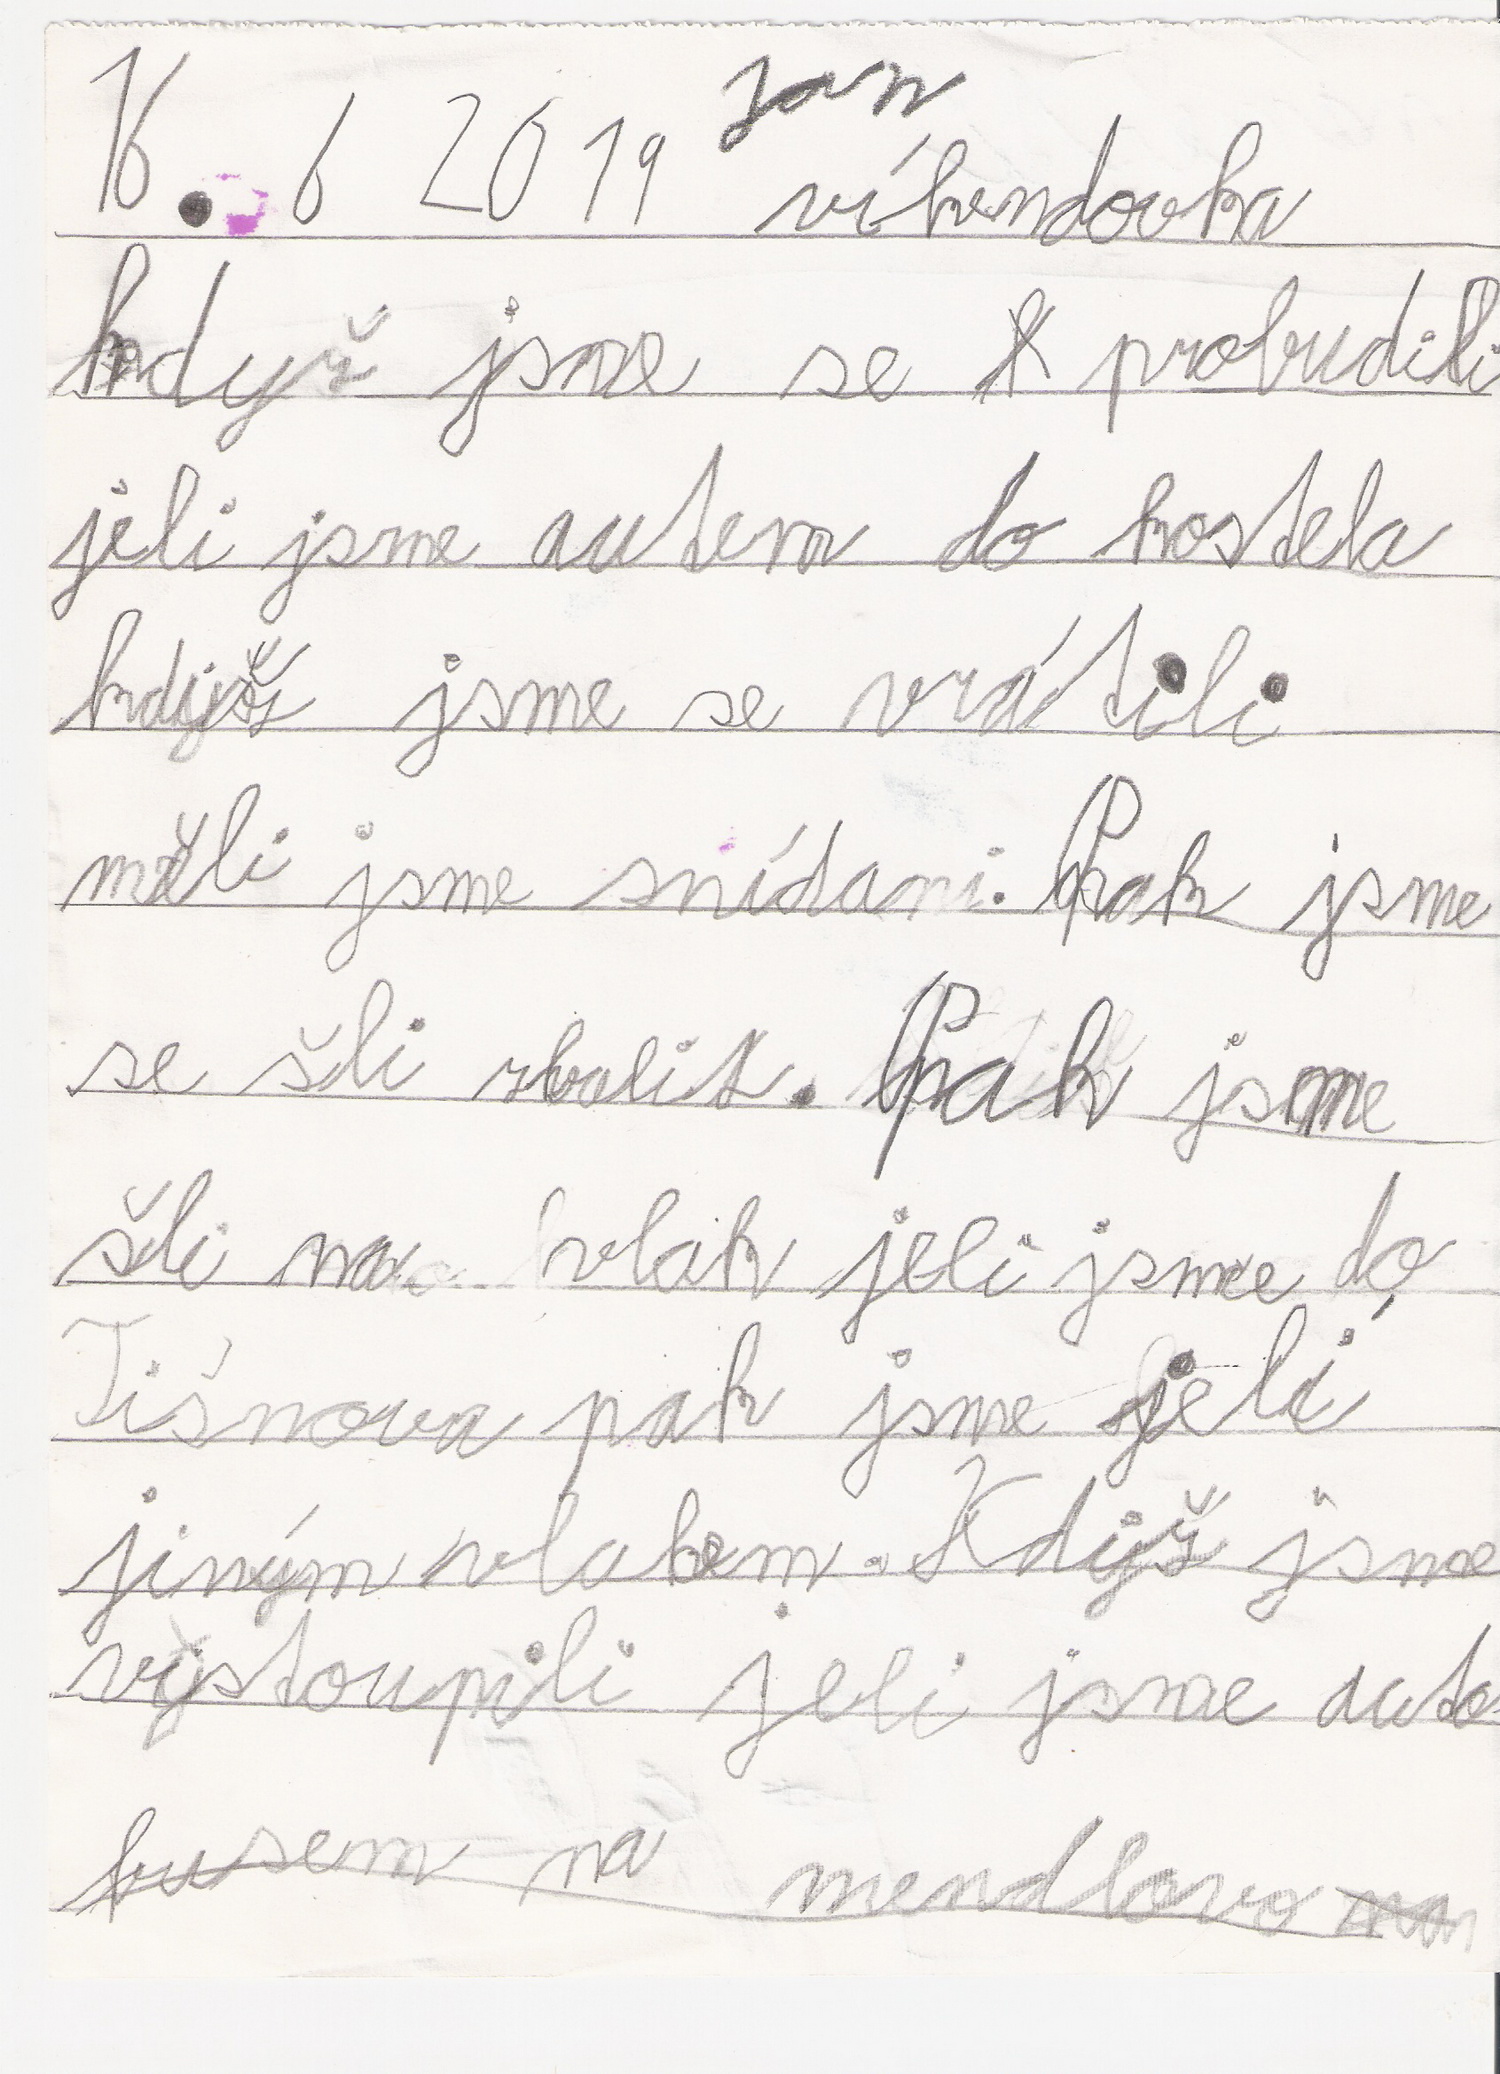 16. 6 2019 jan
víkendovka
když jsme se probudili
jeli jsme autem do kostela
kdyš jsme se vrátili
měli jsme snídani. Pak jsme
se šli sbalit. Pak jsme
šli na vlak jeli jsme do
Tišnova pak jsme jeli
jiným vlakem. Kdyš jsme
vystoupili jeli jsme auto
busem na mendlovo